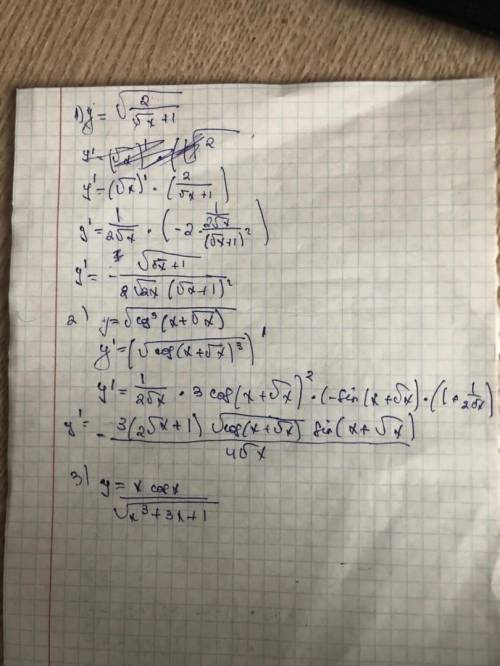 1) y = √(2/(√x + 1))
y' = (√x)' · (2/(√x + 1))
y' = 1/(2√x) · (-2 · (1/(2√x))/(√x+1)²)
y' = - √(√x+1)/(2√2x (√x+1)²)
2) y = √cos³(x+√x)
y' = (√cos(x+√x)³)'
y' = 1/(2√x) · 3 cos(x+√x)² · (-sin(x+√x) · (1 + 1/(2√x))
y' = - 3(2√x+1) √cos(x+√x) sin(x+√x)/(4√x)
3) y = x cos x/√(x³+3x+1)